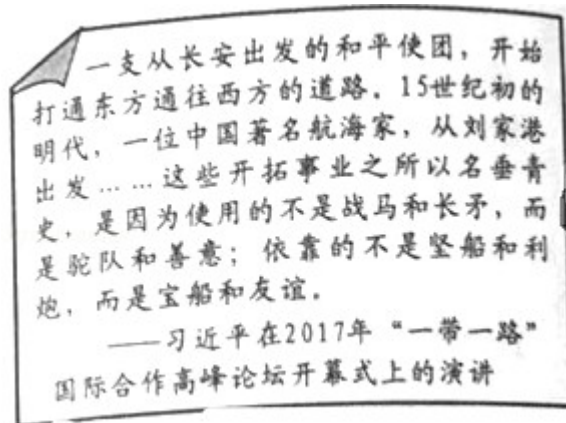 一支从长安出发的和平使团，开始
打通东方通往西方的道路。15世纪初的
明代，一位中国著名航海家，从刘家港
出发……这些开拓事业之所以名垂青
史，是因为使用的不是战马和长矛，而
是驼队和善意；依靠的不是坚船和利
炮，而是宝船和友谊。
——习近平在2017年“一带一路”
国际合作高峰论坛开幕式上的演讲